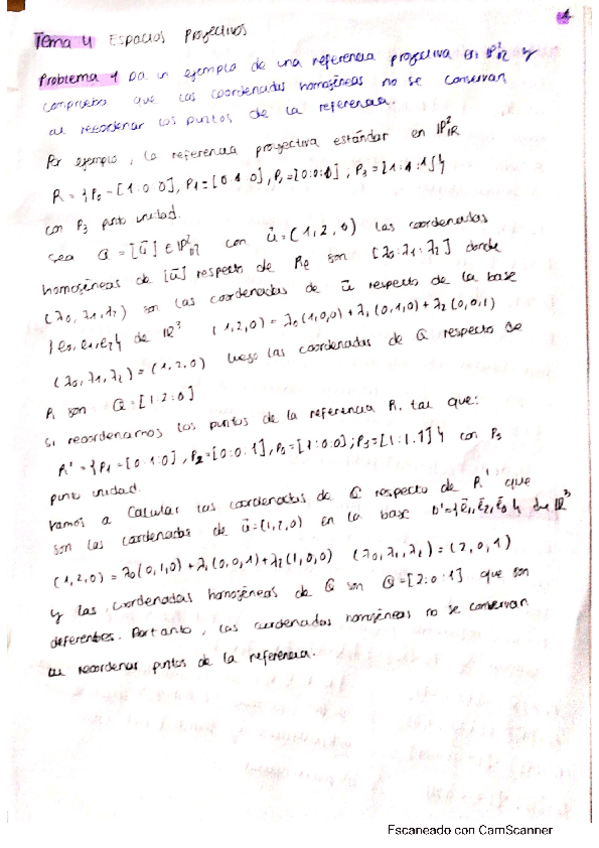 1
Tema 4 Espacios Proyectivos
Problema 1 Da un ejemplo de una referencia proyectiva en ℙ²_ℝ y
comprueba que las coordenadas homogéneas no se conservan
al reordenar los puntos de la referencia.
Por ejemplo, la referencia proyectiva estándar en ℙ²_ℝ
R = {P₀ = [1:0:0], P₁ = [0:1:0], P₂ = [0:0:1]; P₃ = [1:1:1]}
con P₃ punto unidad.
Sea Q = [ū] ∈ ℙ²_ℝ con ū = (1,2,0) las coordenadas
homogéneas de [ū] respecto de R son [λ₀:λ₁:λ₂] donde
(λ₀, λ₁, λ₂) son las coordenadas de ū respecto de la base
{e₀, e₁, e₂} de ℝ³ (1,2,0) = λ₀(1,0,0) + λ₁(0,1,0) + λ₂(0,0,1)
(λ₀, λ₁, λ₂) = (1,2,0) luego las coordenadas de Q respecto de
R son Q = [1:2:0]
Si reordenamos los puntos de la referencia R, tal que:
R' = {P₁ = [0:1:0], P₂ = [0:0:1], P₀ = [1:0:0]; P₃ = [1:1:1]} con P₃
punto unidad.
Vamos a calcular las coordenadas de Q respecto de R' que
son las coordenadas de ū = (1,2,0) en la base B' = {ē₁, ē₂, ē₀} de ℝ³
(1,2,0) = λ₀(0,1,0) + λ₁(0,0,1) + λ₂(1,0,0) (λ₀, λ₁, λ₂) = (2,0,1)
y las coordenadas homogéneas de Q son Q = [2:0:1] que son
diferentes. Por tanto, las coordenadas homogéneas no se conservan
al reordenar puntos de la referencia.
Escaneado con CamScanner